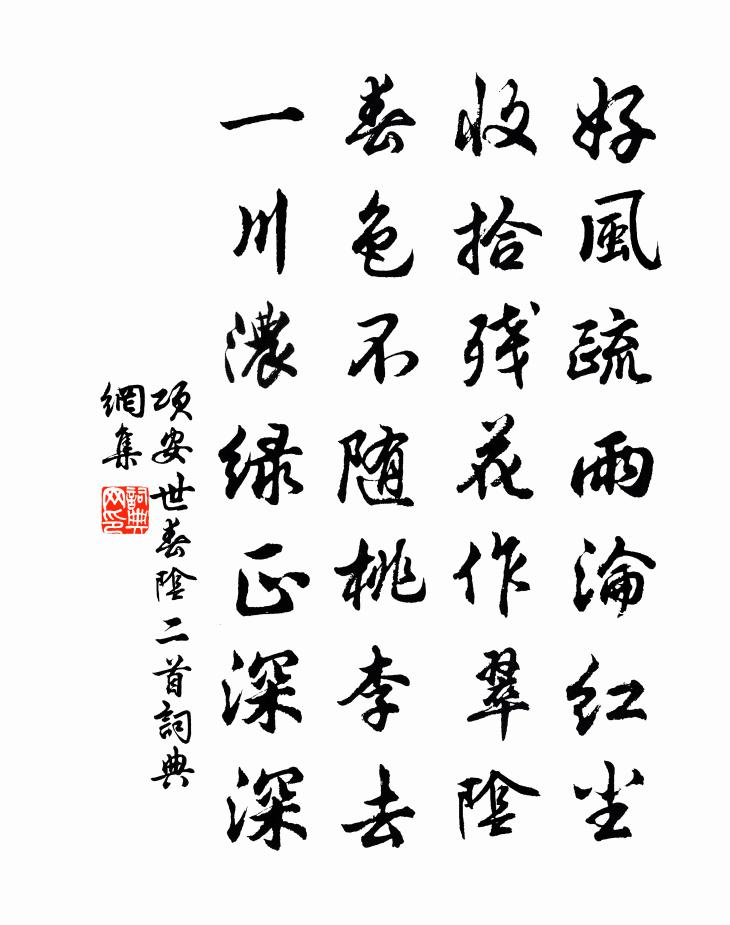 好風疏雨淪紅尘
收拾残花作翠陰
春色不随桃李去
一川濃緑正深深
項安世春陰二首詞典
網集
詞典
网印